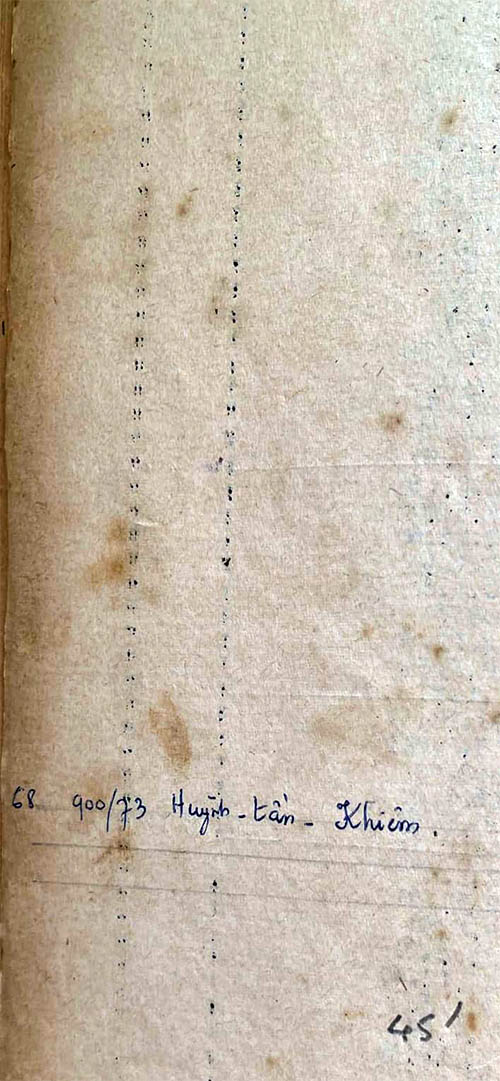 68 900/73 Huỳnh - tấn - Khiêm.
45'